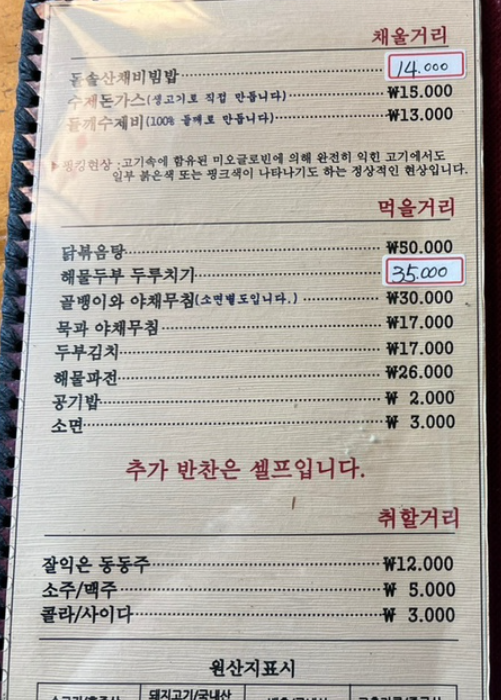 채울거리
돌솥산채비빔밥 14.000
수제돈가스(생고기로 직접 만듭니다) ₩15.000
들깨수제비(100% 들깨로 만듭니다) ₩13.000
▶핑킹현상 :고기속에 함유된 미오글로빈에 의해 완전히 익힌 고기에서도
일부 붉은색 또는 핑크색이 나타나기도 하는 정상적인 현상입니다.
먹을거리
닭볶음탕 ₩50.000
해물두부 두루치기 35.000
골뱅이와 야채무침(소면별도입니다.) ₩30.000
묵과 야채무침 ₩17.000
두부김치 ₩17.000
해물파전 ₩26.000
공기밥 ₩ 2.000
소면 ₩ 3.000
추가 반찬은 셀프입니다.
취할거리
잘익은 동동주 ₩12.000
소주/맥주 ₩ 5.000
콜라/사이다 ₩ 3.000
원산지표시
돼지고기/국내산